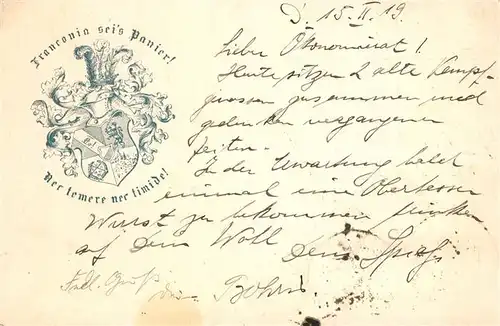 Franconia sei's Panier!
Nec temere nec timide!
D. 15. II. 19.
Lieber Ökonomierat!
Heute sitzen 2 alte Kampf-
genossen zusammen und
gedenken vergangener
Zeiten.
In der Erwartung bald
einmal eine Oberhesser
Wurst zu bekommen trinken
auf dein Wohl
Dein
Frdl. Gruß